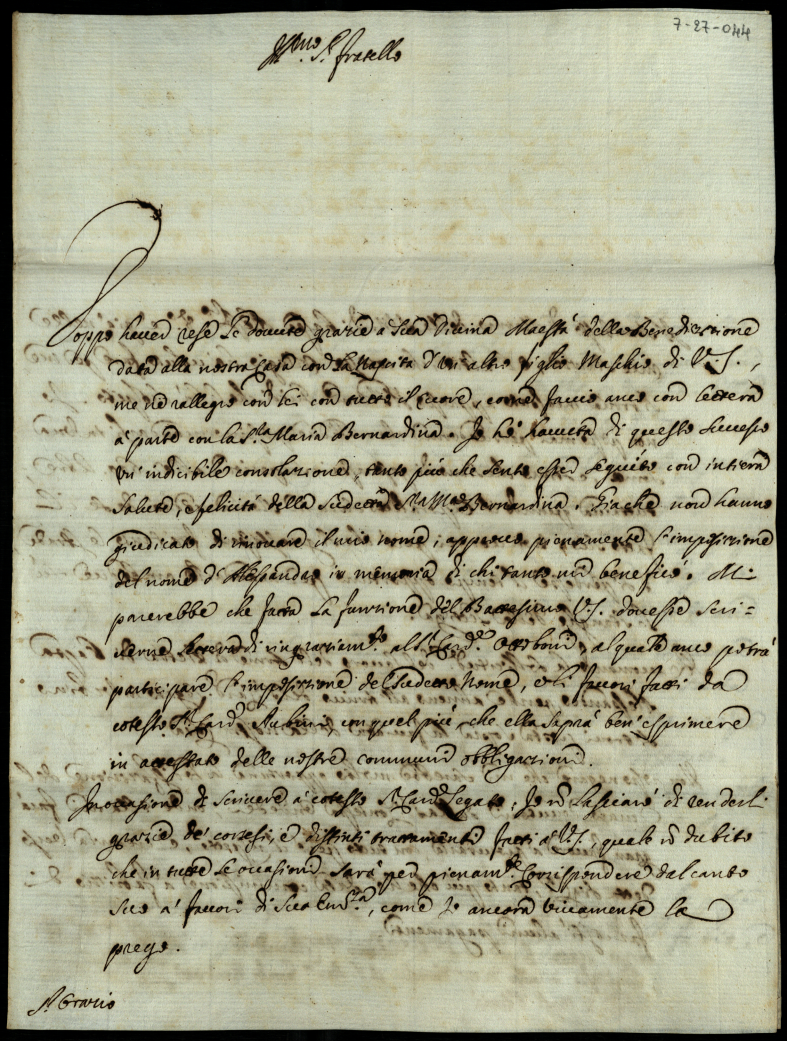 7-27-044
Ill.mo S.r fratello
Doppo haver rese le dovute grazie a Sua Divina Maestà della Benedizzione
data alla nostra Casa con la Nascita d'un altro figlio Maschio di V.S.,
me ne rallegro con lei con tutto il cuore, come faccio anco con lettera
a parte con la S.ra Maria Bernardina. Io hò havuta di questo successo
un' indicibile consolazione, tanto più che sento esser seguito con intiera
salute, e felicità della sudetta S.ra M.a Bernardina. Giache non hanno
giudicato di rinovare il mio nome, approvo pienamente l'imposizione
del nome d'Alessandro in memoria di chi tanto mi beneficò. Mi
parerebbe che fatta la funzione del Battesimo V.S. dovesse scri=
verne lettera di ringraziam.to al S.r Card.le Ottoboni, al quale anco potrà
participare l'imposizione del sudetto Nome, e li favori fatti da
cotesto S.r Card.le Rubini, con quel più, che ella saprà ben' esprimere
in attestato delle nostre communi obbligazioni.
In occasione di scrivere à cotesto S.r Card.le Legato, Io nõ lasciarò di renderli
grazie de' cortesi, e distinti trattamenti fatti à V.S., quale nõ dubito
che in tutte le occasioni sarà per pienam.te corrispondere dal canto
suo a' favori di Sua Em.za, come Io ancora vivamente la
prego.
S.r Orazio